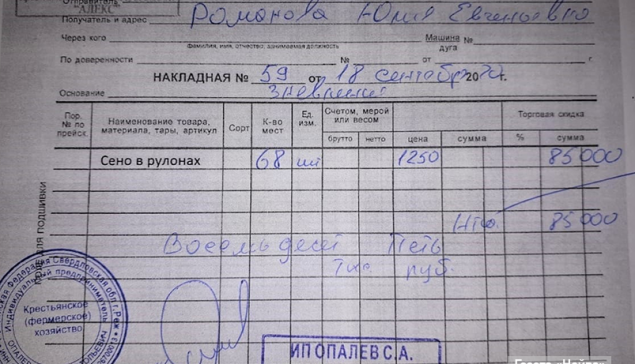 Отправитель "АЛЕКС"
Получатель и адрес Романова Юлия Евгеньевна
Через кого Машина № дуга
фамилия, имя, отчество, занимаемая должность
По доверенности № от г.
НАКЛАДНАЯ № 59 от 18 сентября 20 г.
Основание
Пор. № по прейск. Наименование товара, материала, тары, артикул Сорт К-во мест Ед. изм. Счетом, мерой или весом Торговая скидка
брутто нетто цена сумма % сумма
Сено в рулонах 68 шт 1250 85000
Итого 85000
Восемьдесят Пять
Тыс. руб.
ДЛЯ ПОДШИВКИ
Федерация Свердловская обл г. Реж
Индивидуальный предприниматель
Крестьянское
(фермерское)
хозяйство
ИП ОПАЛЕВ С.А.